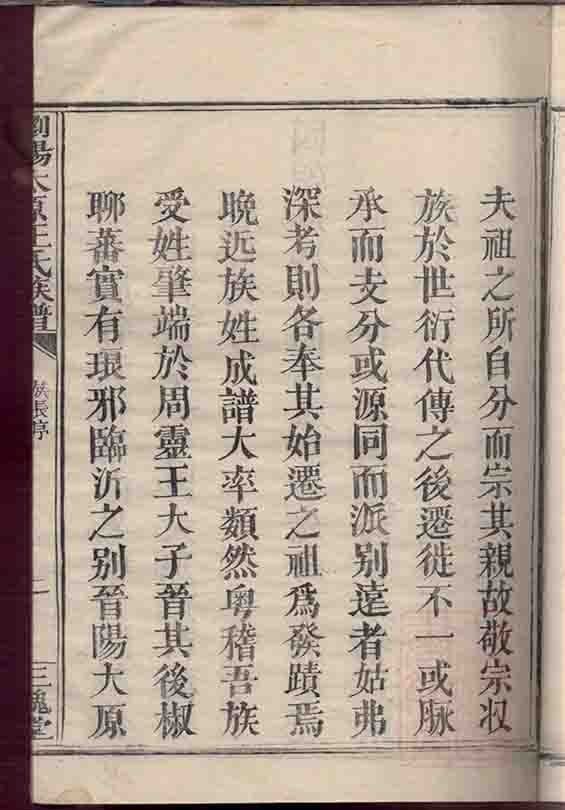 夫祖之所自分而宗其親故敬宗収
族於世衍代傳之後遷徙不一或脈
承而支分或源同而派別遠者姑弗
深考則各奉其始遷之祖爲發蹟焉
晩近族姓成譜大率類然粤稽吾族
受姓肇端於周靈王大子晉其後椒
聊蕃實有琅邪臨沂之别晉陽大原
瀏陽太原王氏族譜
族長序
二
三槐堂